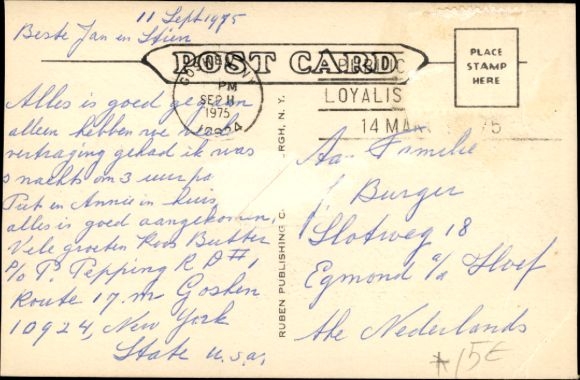 11 Sept 1975
Beste Jan en Stien
POST CARD
PLACE
STAMP
HERE
GOSHEN, NY
PM
SEP 11
1975
10924
LOYALIS
14 MA
Alles is goed gegaan
alleen hebben we veel
vertraging gehad ik was
s nachts om 3 uur pa
Piet en Annie in huis
alles is goed aangekomen,
Vele groeten Koos Butter
P/o P. Pepping R D #1
Route 17.m Goshen
10924, New York
State U.S.A.
RUBEN PUBLISHING C RGH, N. Y.
Aan Familie
J Burger
Slotweg 18
Egmond a/d Hoef
the Nederlands
15E